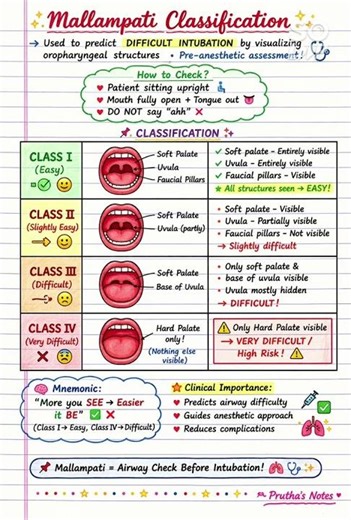 Mallampati Classification
→ Used to predict DIFFICULT INTUBATION by visualizing
oropharyngeal structures • Pre-anesthetic assessment!
How to Check?
♥ Patient sitting upright
♥ Mouth fully open + Tongue out
♥ DO NOT say "ahh" ❌
CLASSIFICATION
CLASS I
(Easy)
Soft Palate
Uvula
Faucial Pillars
✓ Soft palate - Entirely visible
✓ Uvula - Entirely visible
✓ Faucial pillars - Visible
★ All structures seen → EASY!
CLASS II
(Slightly Easy)
Soft Palate
Uvula (partly)
• Soft palate - Visible
• Uvula - Partially visible
• Faucial pillars - Not visible
→ Slightly difficult
CLASS III
(Difficult)
Soft Palate
Base of Uvula
• Only soft palate &
• base of uvula visible
• Uvula mostly hidden
→ DIFFICULT!
CLASS IV
(Very Difficult)
Hard Palate
only!
(Nothing else
visible)
Only Hard Palate visible
→ VERY DIFFICULT /
High Risk!
Mnemonic:
"More you SEE → Easier
it BE"
(Class I → Easy, Class IV → Difficult)
Clinical Importance:
♥ Predicts airway difficulty
♥ Guides anesthetic approach
♥ Reduces complications
Mallampati = Airway Check Before Intubation!
Prutha's Notes ♥